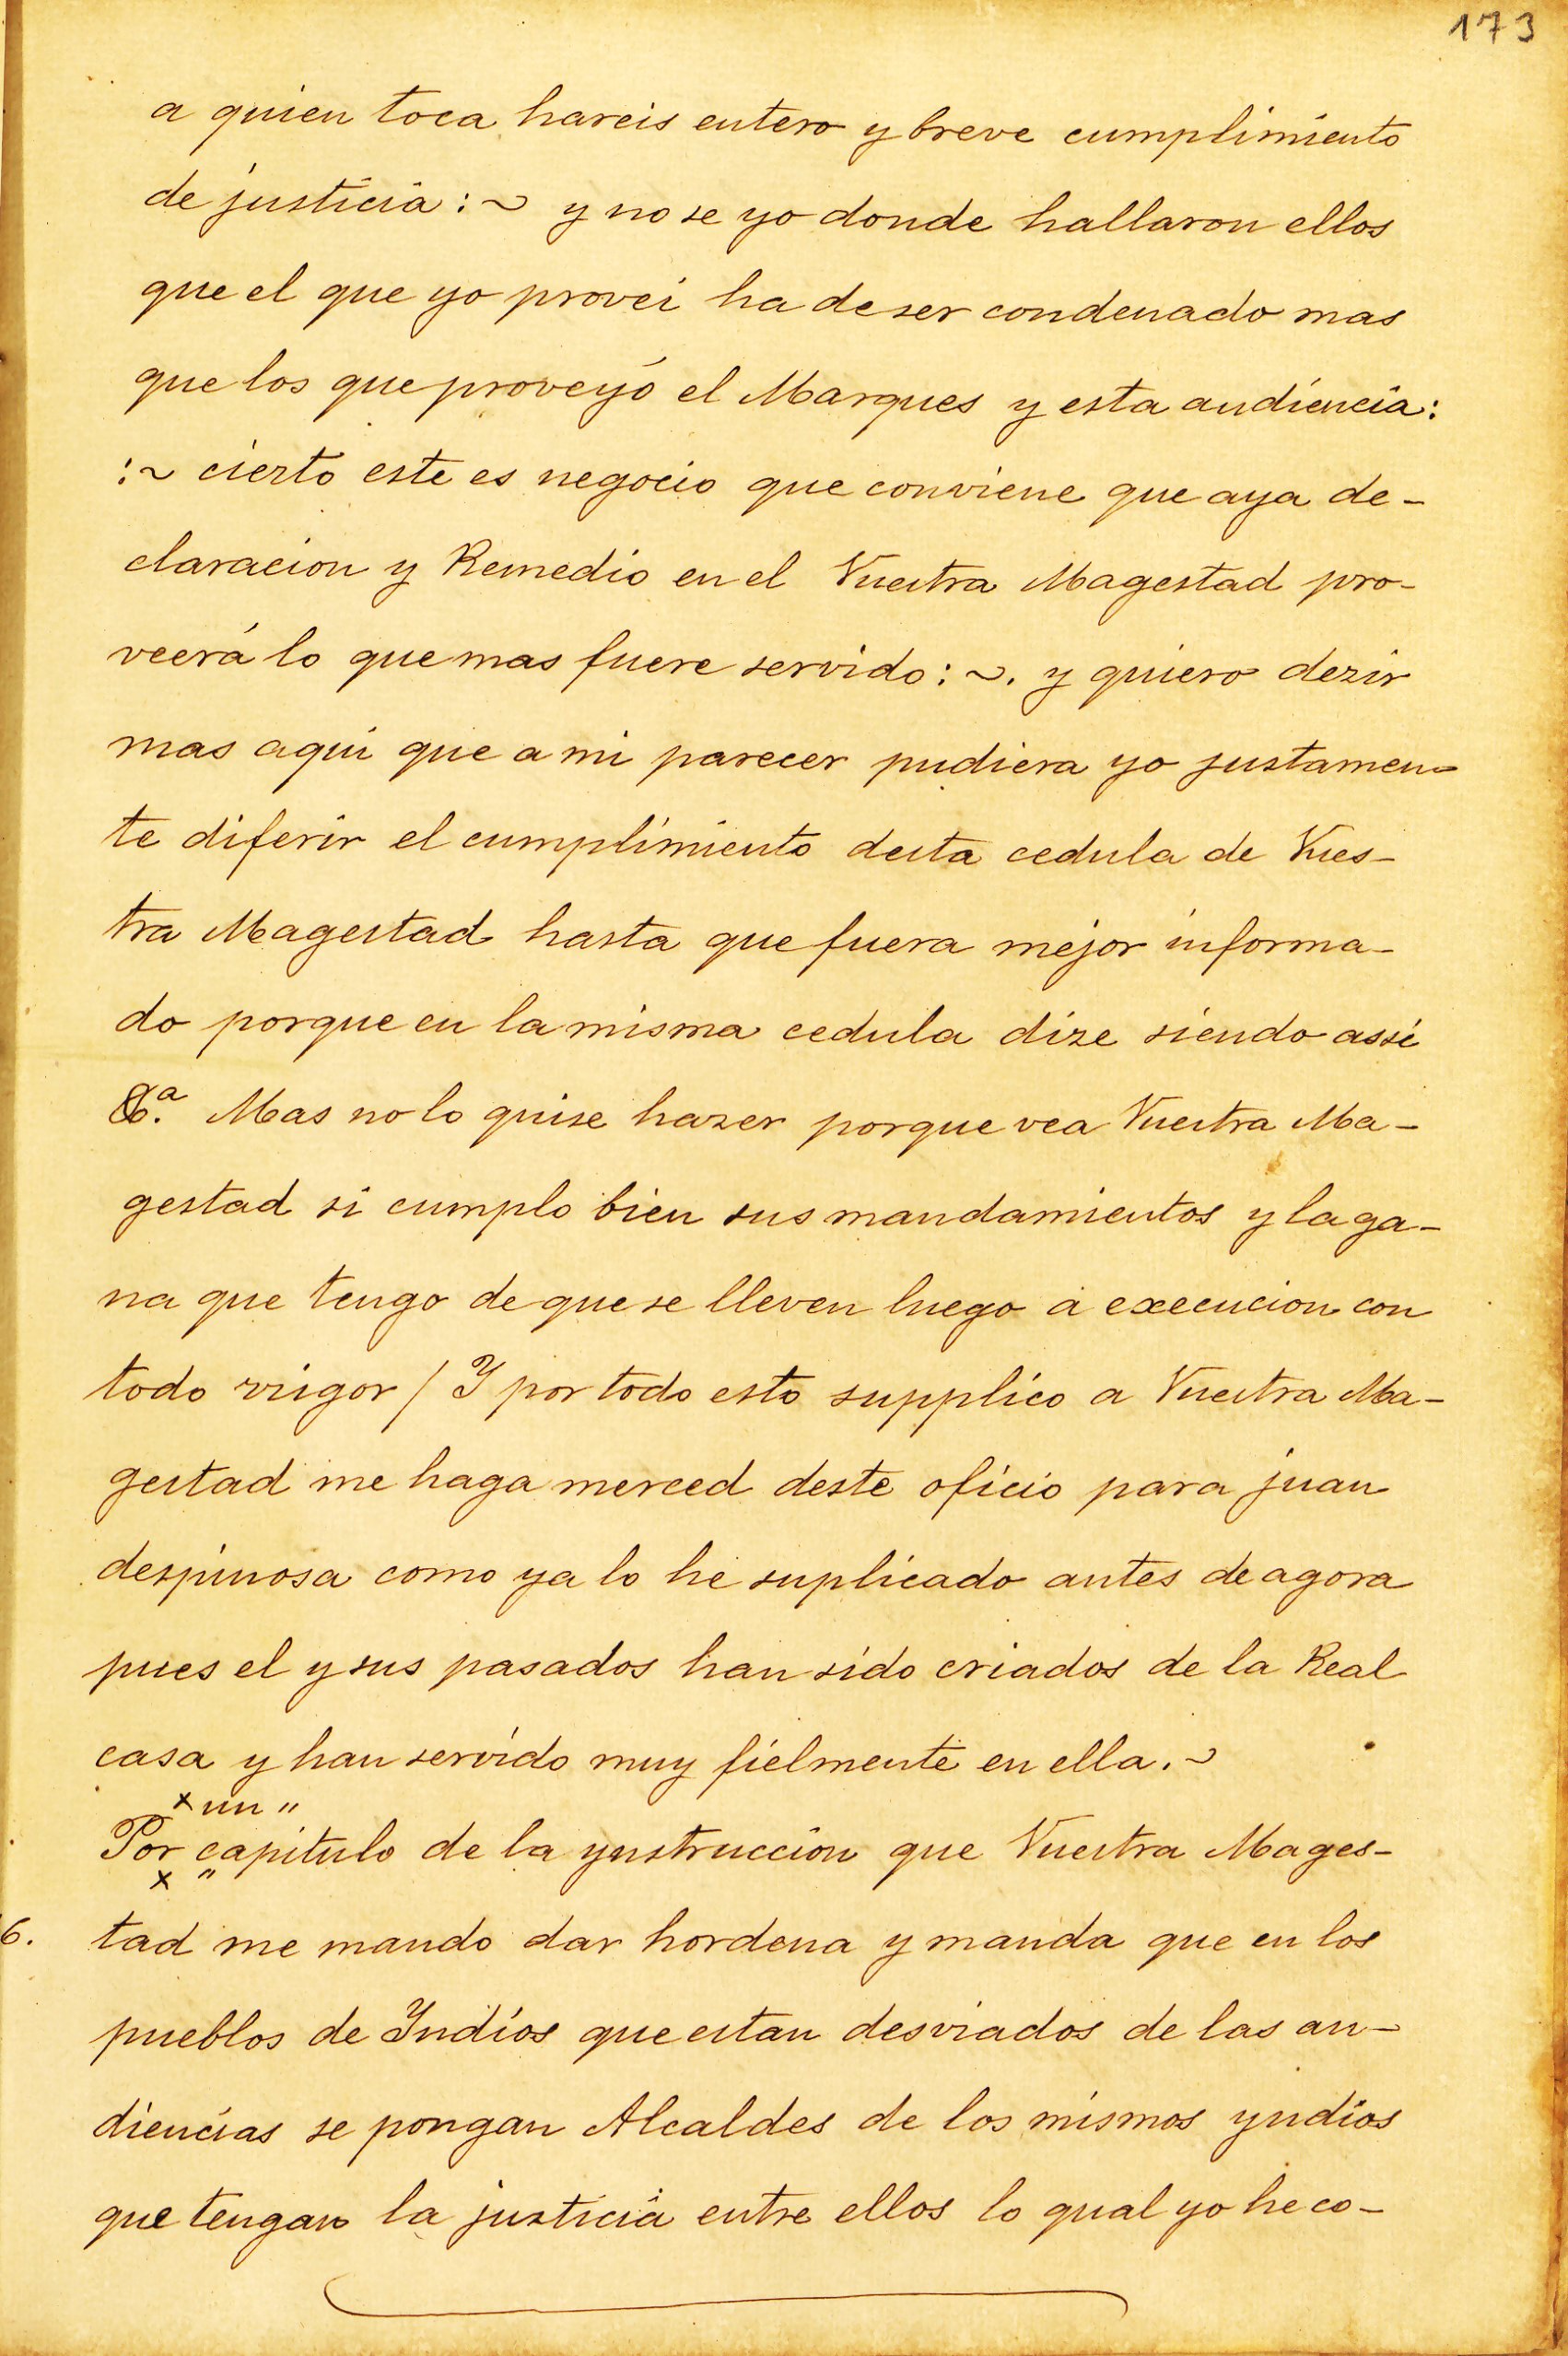 173
a quien toca hareis entero y breve cumplimiento
de justicia :~ y no se yo donde hallaron ellos
que el que yo provei ha de ser condenado mas
que los que proveyó el Marques y esta audiencia:
:~ cierto este es negocio que conviene que aya de-
claracion y Remedio en el Vuestra Magestad pro-
veerá lo que mas fuere servido :~. y quiero dezir
mas aqui que a mi parecer pudiera yo justamen-
te diferir el cumplimiento desta cedula de Vues-
tra Magestad hasta que fuera mejor informa-
do porque en la misma cedula dize siendo assi
&ª. Mas no lo quise hazer porque vea Vuestra Ma-
gestad si cumplo bien sus mandamientos y la ga-
na que tengo de que se lleven luego a execucion con
todo rrigor / Y por todo esto supplico a Vuestra Ma-
gestad me haga merced deste oficio para juan
despinosa como ya lo he suplicado antes de agora
pues el y sus pasados han sido criados de la Real
casa y han servido muy fielmente en ella.~
x un "
Por capitulo de la ynstruccion que Vuestra Mages-
x "
6. tad me mando dar hordena y manda que en los
pueblos de Yndios que estan desviados de las au-
diencias se pongan Alcaldes de los mismos yndios
que tengan la justicia entre ellos lo qual yo he co-